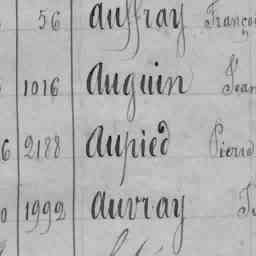 56 Auffray Franço
1016 Auguin Jean
6 2188 Aupied Pierre
0 1992 Auvray